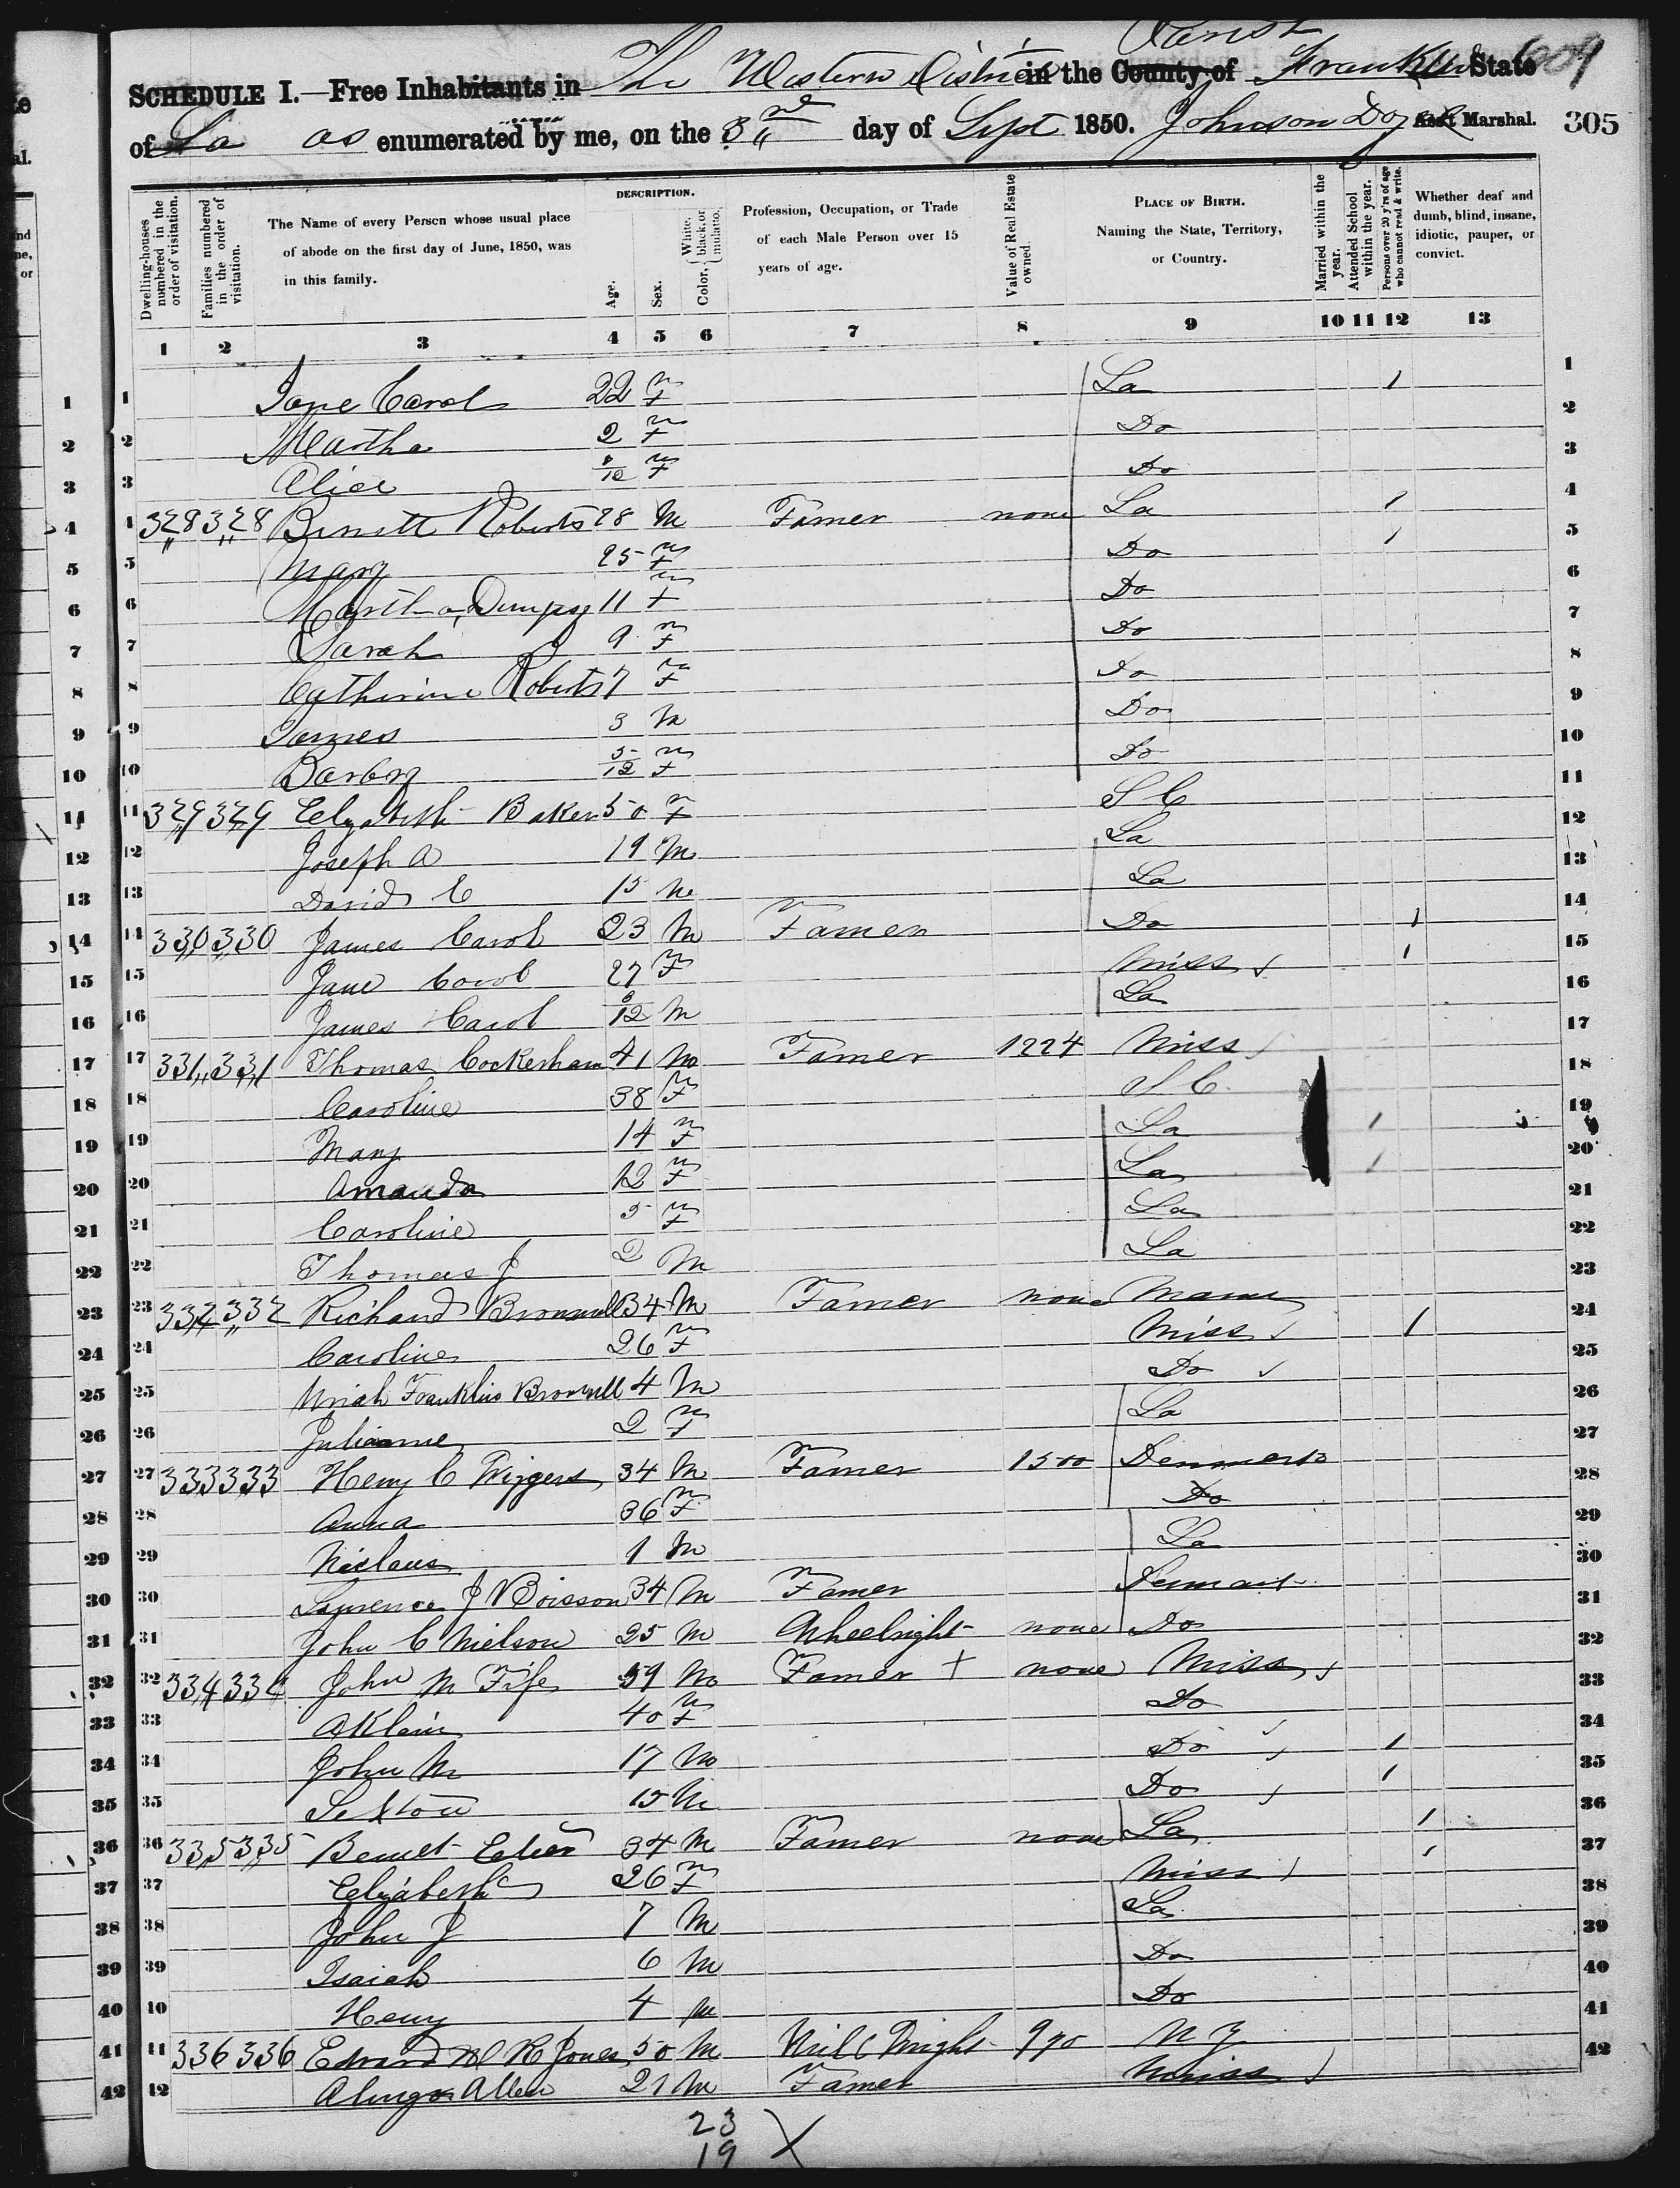 609
SCHEDULE I.—Free Inhabitants in The Western District in the County of Parish Franklin State
of La as enumerated by me, on the 3rd day of Sept 1850. Johnson Doyal Ass't Marshal. 305
Dwelling-houses numbered in the order of visitation.
Families numbered in the order of visitation.
The Name of every Person whose usual place of abode on the first day of June, 1850, was in this family.
DESCRIPTION.
Age.
Sex.
Color, White, black, or mulatto.
Profession, Occupation, or Trade of each Male Person over 15 years of age.
Value of Real Estate owned.
PLACE OF BIRTH. Naming the State, Territory, or Country.
Married within the year.
Attended School within the year.
Persons over 20 y'rs of age who cannot read & write.
Whether deaf and dumb, blind, insane, idiotic, pauper, or convict.
1 2 3 4 5 6 7 8 9 10 11 12 13
1 Jane Carol 22 F La 1
2 Martha 2 F Do
3 Alice /10 F Do
4 328 328 Roberts 28 M Famer none La 1
5 Mary 25 F Do 1
6 Martha Dempsy 11 F Do
7 Sarah 9 F Do
8 Catherine Roberts 7 F Do
9 James 3 M Do
10 Barbry 5/12 F Do
11 329 329 Elyabeth Baker 50 F S C
12 Joseph A 19 M La
13 David E 15 M La
14 330 330 James Carol 23 M Famer Do 1
15 Jane Carol 27 F Miss 1
16 James Carol 8/12 M La
17 331 331 Thomas Cockerham 41 M Famer 1224 Miss
18 Caroline 38 F S C
19 Mary 14 F La 1
20 Amanda 12 F La 1
21 Caroline 5 F La
22 Thomas J 2 M La
23 332 332 Richard Brownell 34 M Famer none
24 Caroline 26 F Miss 1
25 Uriah Franklin Brownell 4 M Do
26 Julianne 2 F La
27 333 333 Henry C Wiggers 34 M Famer 1500 Denmark
28 Anna 36 F Do
29 Niclaus 1 M La
30 Laurence J Boisson 34 M Famer Denmark
31 John C Nielson 25 M Wheelright none Do
32 334 334 John M Fife 59 M Famer + none Miss
33 40 F Do
34 John M 17 M Do 1
35 Sexton 15 M Do 1
36 335 335 Bennet 34 M Famer none La 1
37 Elizabeth 26 F Miss 1
38 John J 7 M La
39 Isaiah 6 M Do
40 Henry 4 M Do
41 336 336 Edward Jones 50 M Mill Wright 970 N Y
42 Allen 21 M Famer Miss
23
19 X